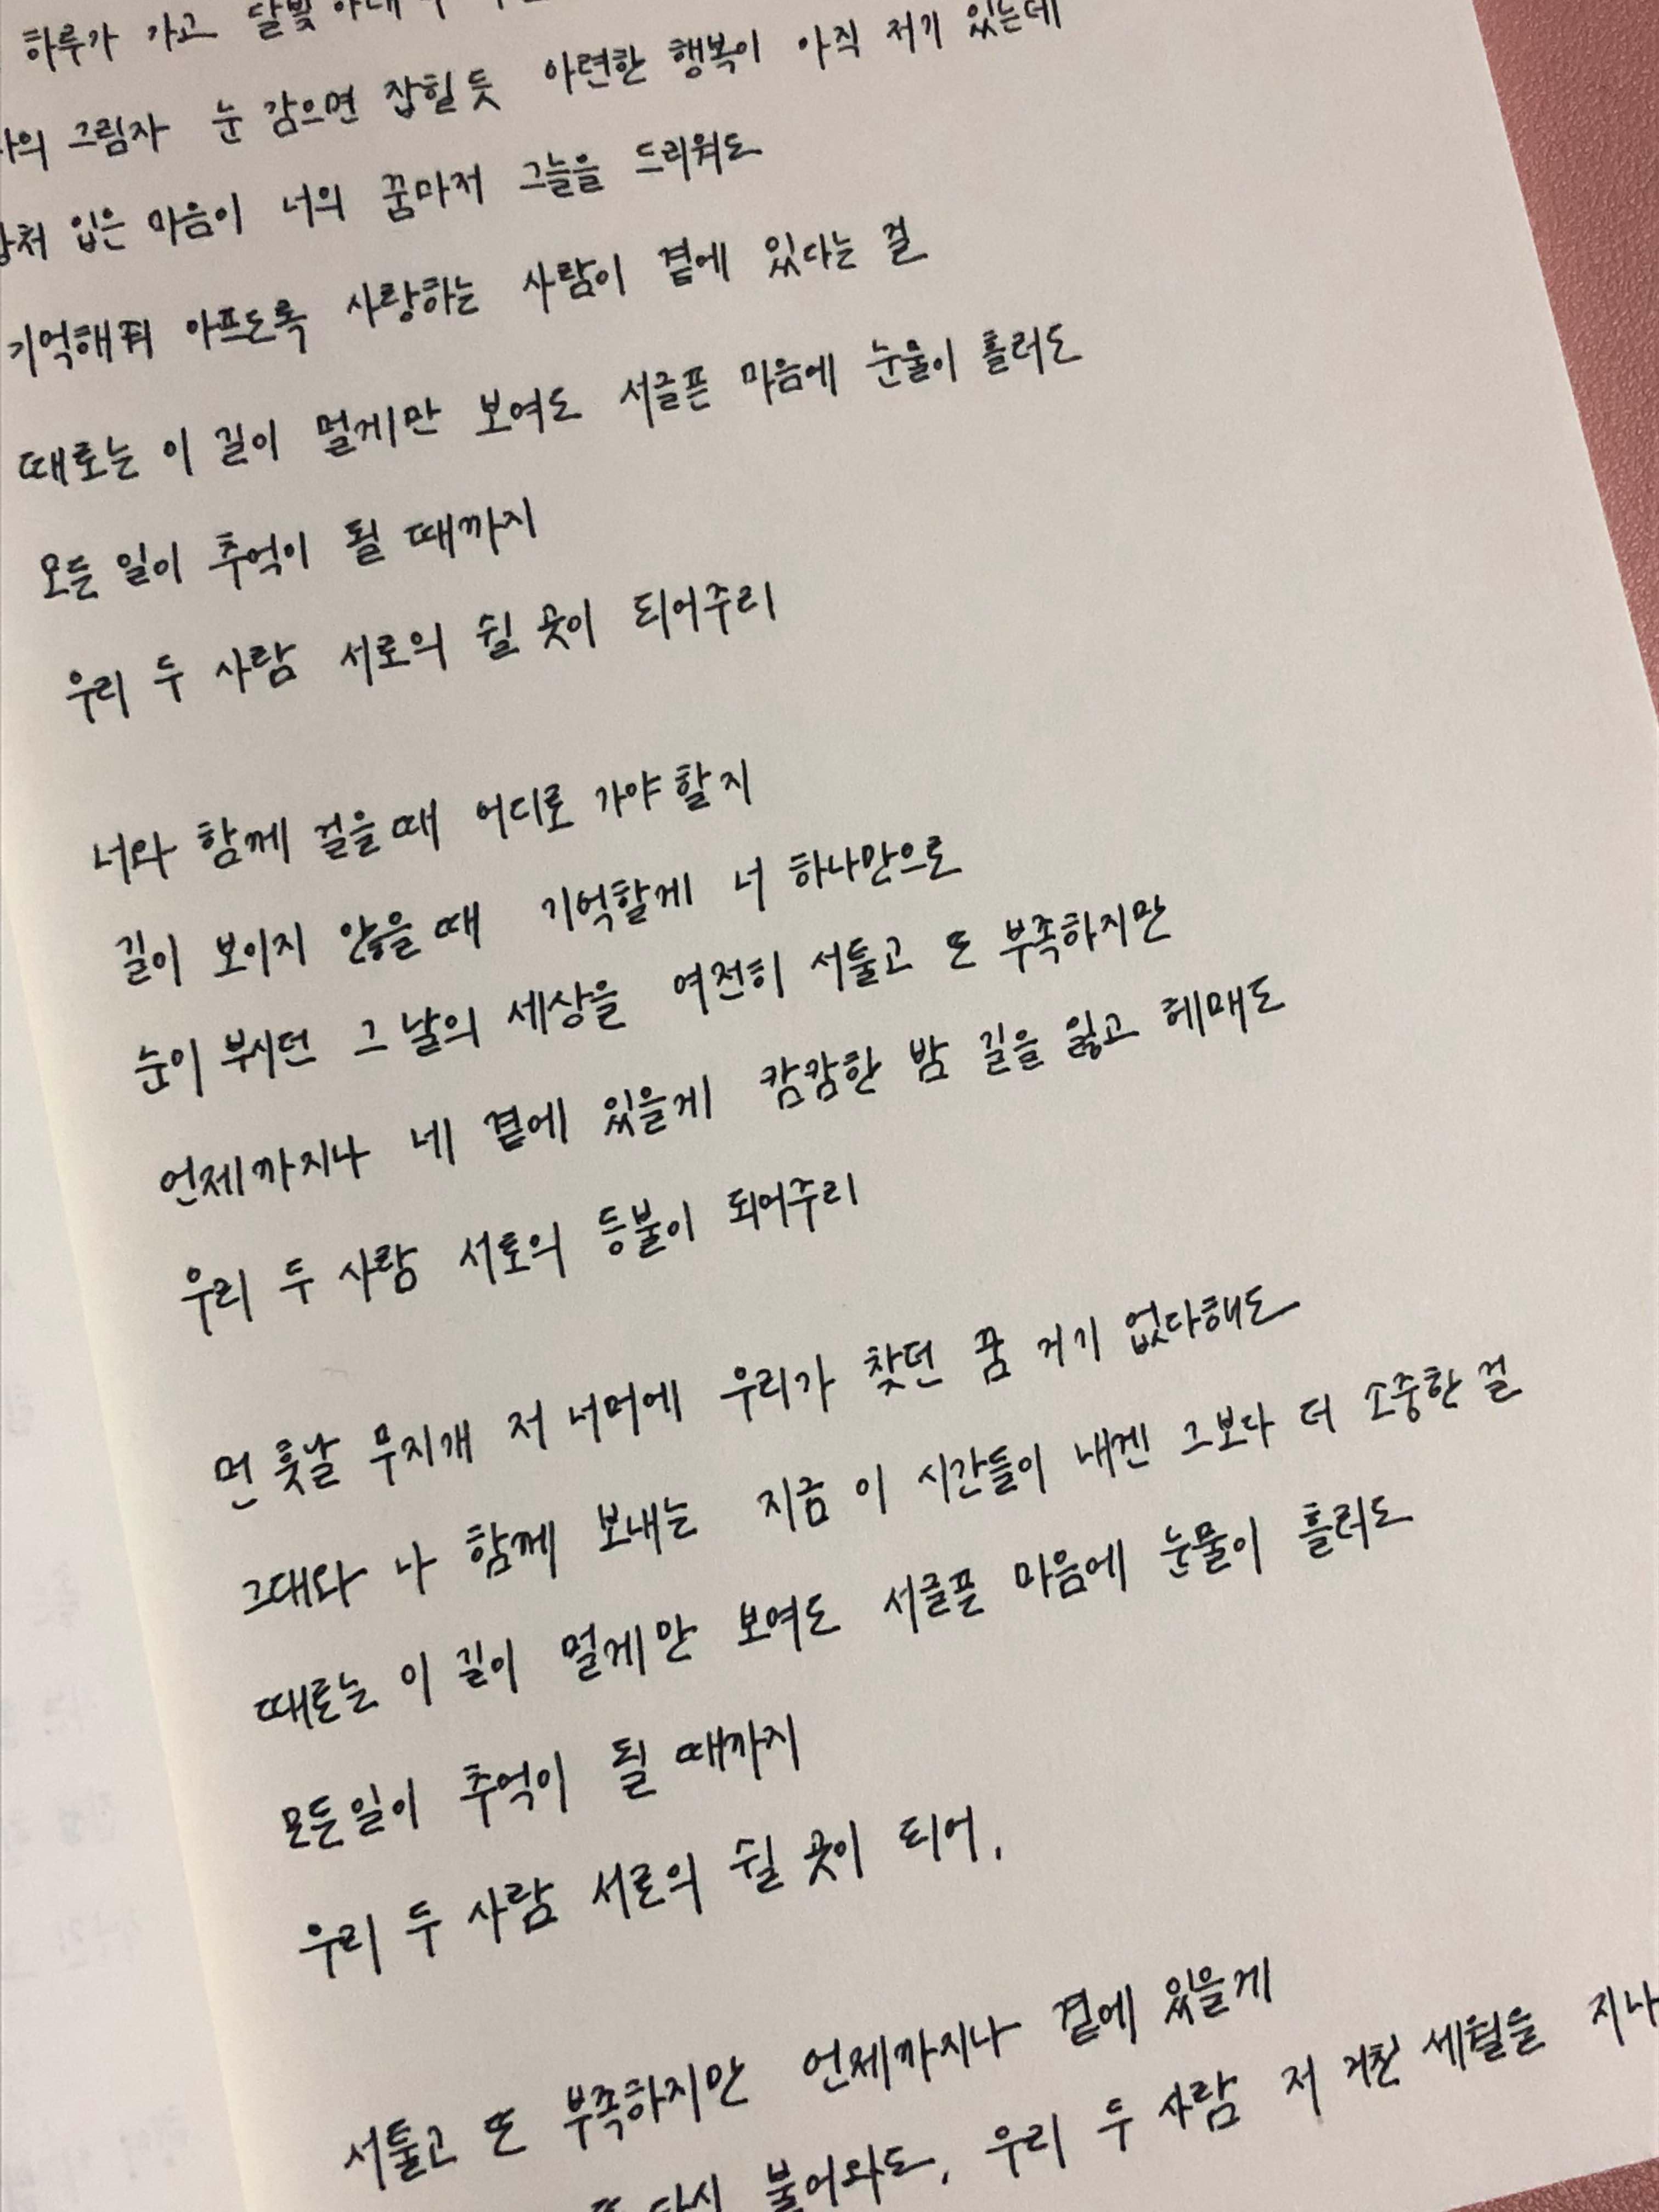 하루가 가고 달빛 아래
그림자 눈 감으면 잡힐 듯 아련한 행복이 아직 저기 있는데
입은 마음이 너의 꿈마저 그늘을 드리워도
기억해줘 아프도록 사랑하는 사람이 곁에 있다는 걸
때로는 이 길이 멀게만 보여도 서글픈 마음에 눈물이 흘러도
모든 일이 추억이 될 때까지
우리 두 사람 서로의 쉴 곳이 되어주리
너와 함께 걸을 때 어디로 가야 할지
길이 보이지 않을 때 기억할게 너 하나만으로
눈이 부시던 그 날의 세상을 여전히 서툴고 또 부족하지만
언제까지나 네 곁에 있을게 캄캄한 밤 길을 잃고 헤매도
우리 두 사람 서로의 등불이 되어주리
먼 훗날 무지개 저 너머에 우리가 찾던 꿈 거기 없다해도
그대와 나 함께 보내는 지금 이 시간들이 내겐 그보다 더 소중한 걸
때로는 이 길이 멀게만 보여도 서글픈 마음에 눈물이 흘러도
모든일이 추억이 될 때까지
우리 두 사람 서로의 쉴 곳이 되어.
서툴고 또 부족하지만 언제까지나 곁에 있을게
또 다시 불어와도, 우리 두 사람 저 거친 세월을 지나